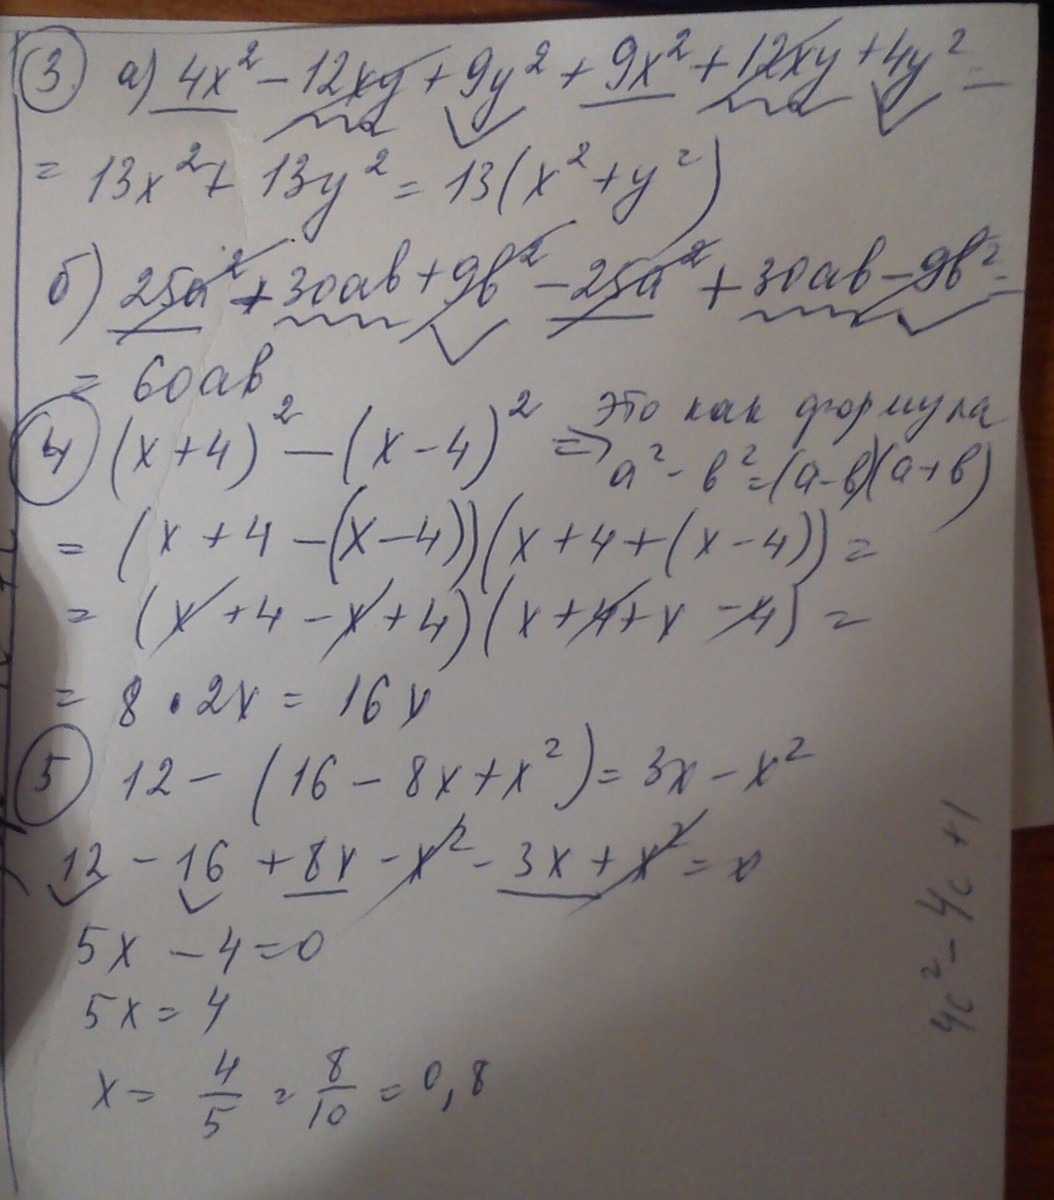 3 а) 4x² - 12xy + 9y² + 9x² + 12xy + 4y² =
= 13x² + 13y² = 13(x² + y²)
б) 25a² + 30ab + 9b² - 25a² + 30ab - 9b² =
= 60ab
4 (x+4)² - (x-4)² => это как формула
a² - b² = (a-b)(a+b)
= (x+4-(x-4))(x+4+(x-4)) =
= (x+4-x+4)(x+4+x-4) =
= 8 · 2x = 16x
5 12 - (16 - 8x + x²) = 3x - x²
12 - 16 + 8x - x² - 3x + x² = 0
5x - 4 = 0
5x = 4
x = 4/5 = 8/10 = 0,8
4c² - 4c + 1